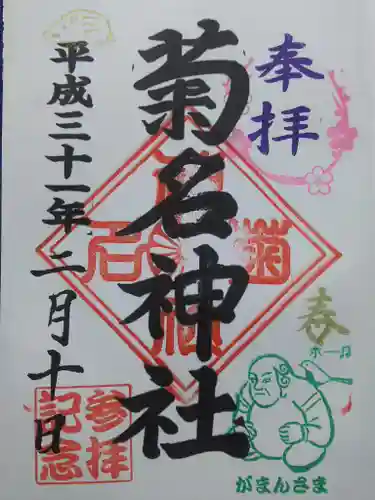 奉拝
菊名神社
平成三十一年二月十日
春
ホーホ
がまんさま
参拝
記念